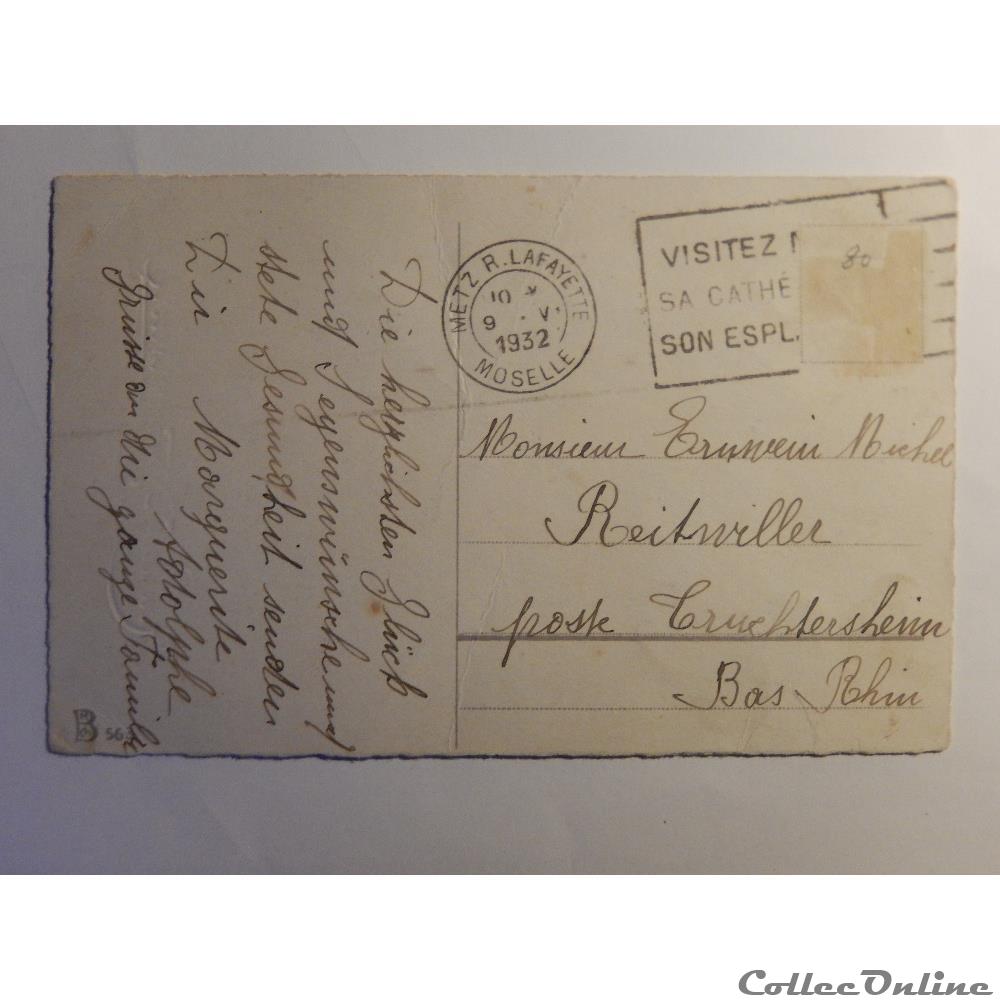 METZ R. LAFAYETTE
10 *
9 . V.
1932
MOSELLE
VISITEZ
SA CATHÉ
SON ESPL.
80
Monsieur Erunvein Michel
Reitwiller
poste Truchtersheim
Bas Rhin
Die herzlichsten Glück
und Segenswünsche und
stete Gesundheit senden
Dir Marguerite
Adolphe
Grüsse an die ganze Familie
B 563
CollecOnline